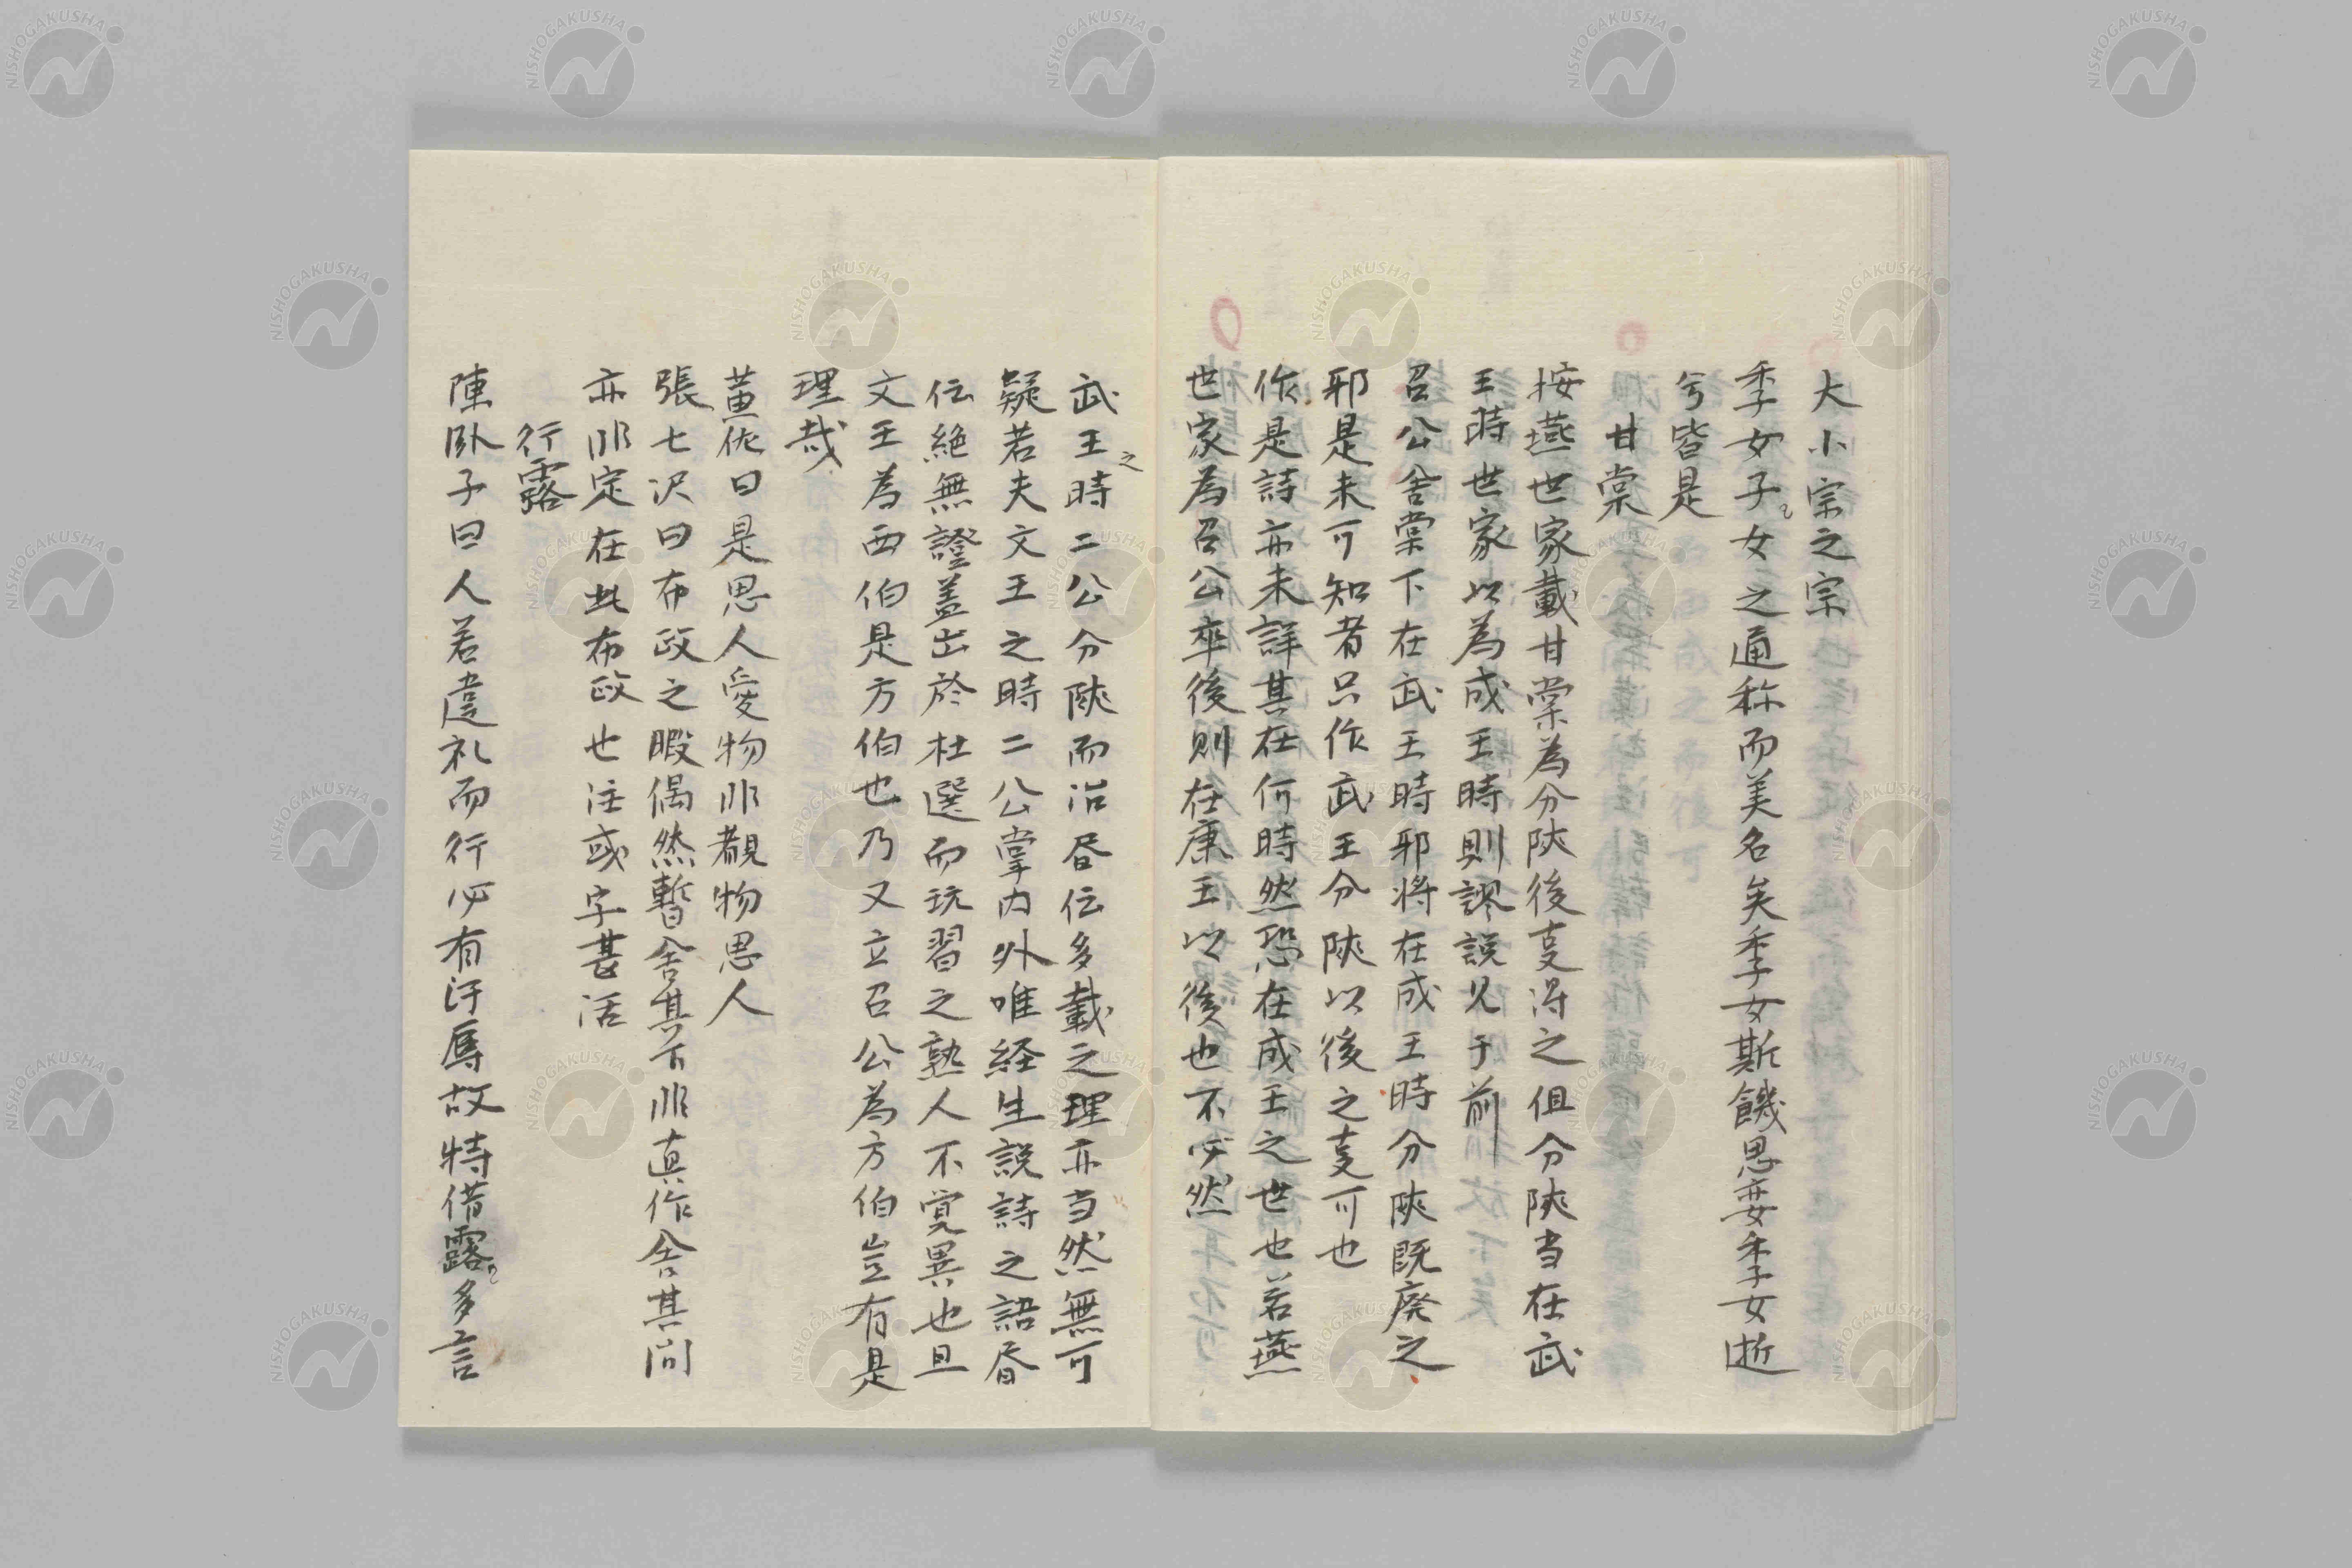 大小宗之宗
季女子女之通称而美名矣季女斯饑思孌季女逝
兮皆是
甘棠
按燕世家載甘棠為分陝後事得之但分陝当在武
王時世家以為成王時則謬説見于前
召公舍棠下在武王時耶将在成王時分陝既廃之
耶是未可知者只作武王分陝以後之事可也
作是詩亦未詳其在何時然恐在成王之世也若燕
世家為召公卒後則在康王以後也不必然
武王之時二公分陝而治昏伝多載之理亦当然無可
疑若夫文王之時二公掌内外唯経生説詩之語昏
伝絶無證蓋出於杜選而玩習之熟人不覚異也且
文王為西伯是方伯也乃又立召公為方伯豈有是
理哉
黄佐曰是思人愛物非覩物思人
張七沢曰布政之暇偶然暫舍其下非真作舍其間
亦非定在此布政也注或字甚活
行露
陳臥子曰人若違礼而行必有汙辱故特借露多言
NISHOGAKUSHA